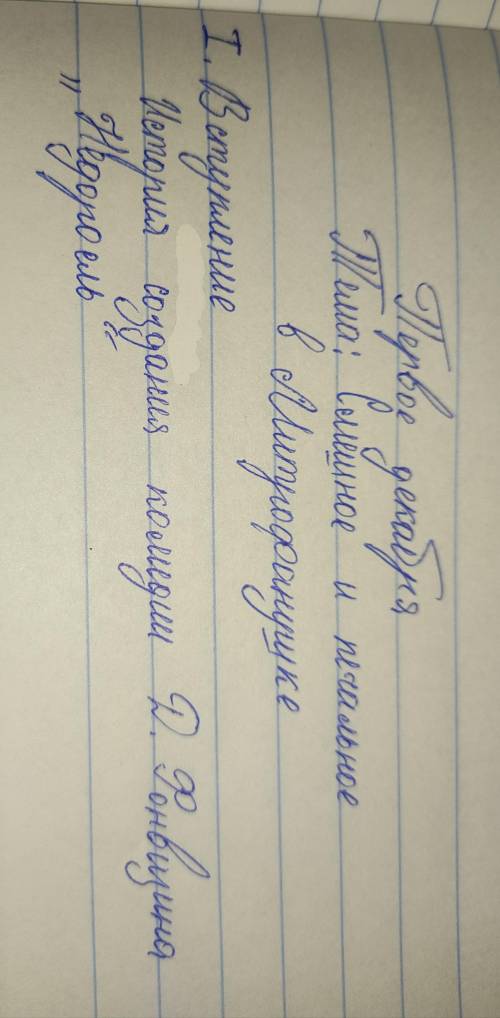 Первое декабря
Тема: Смешное и печальное
в Митрофанушке
I. Вступление
История создания комедии Д. Фонвизина
„Недоросль“